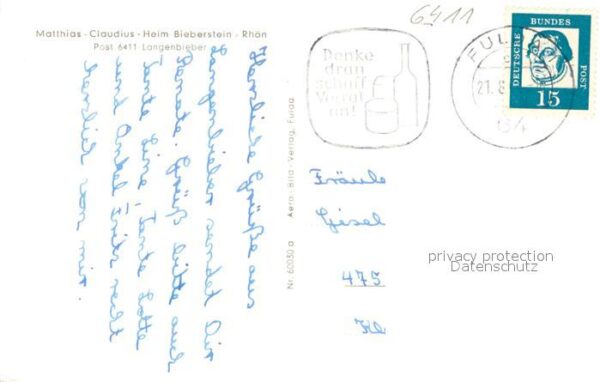 6411
Matthias - Claudius - Heim Bieberstein - Rhön
Post 6411 Langenbieber
Denke
dran
schaff
Vorrat
an!
FULDA
21.8
64
DEUTSCHE BUNDESPOST
15
Herzliche Grüße aus
Langenbieber sendet Dir
Renate. Grüß bitte auch
Tante Line, Tante Lotte
und Onkel Fritz recht
herzlich von mir.
Nr. 60030 a Aero - Bild - Verlag, Fulda
Fräule
Gisel
475
privacy protection
Datenschutz